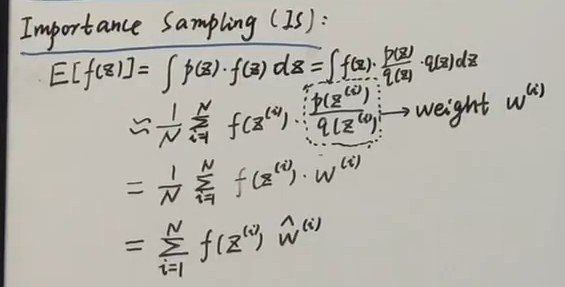 Importance Sampling (IS):
E[f(z)] = ∫ p(z)·f(z) dz = ∫ f(z)· p(z)/q(z) ·q(z)dz
≈ 1/N ∑_{i=1}^{N} f(z^{(i)})· p(z^{(i)})/q(z^{(i)}) → weight w^{(i)}
= 1/N ∑_{i=1}^{N} f(z^{(i)})· w^{(i)}
= ∑_{i=1}^{N} f(z^{(i)}) ŵ^{(i)}